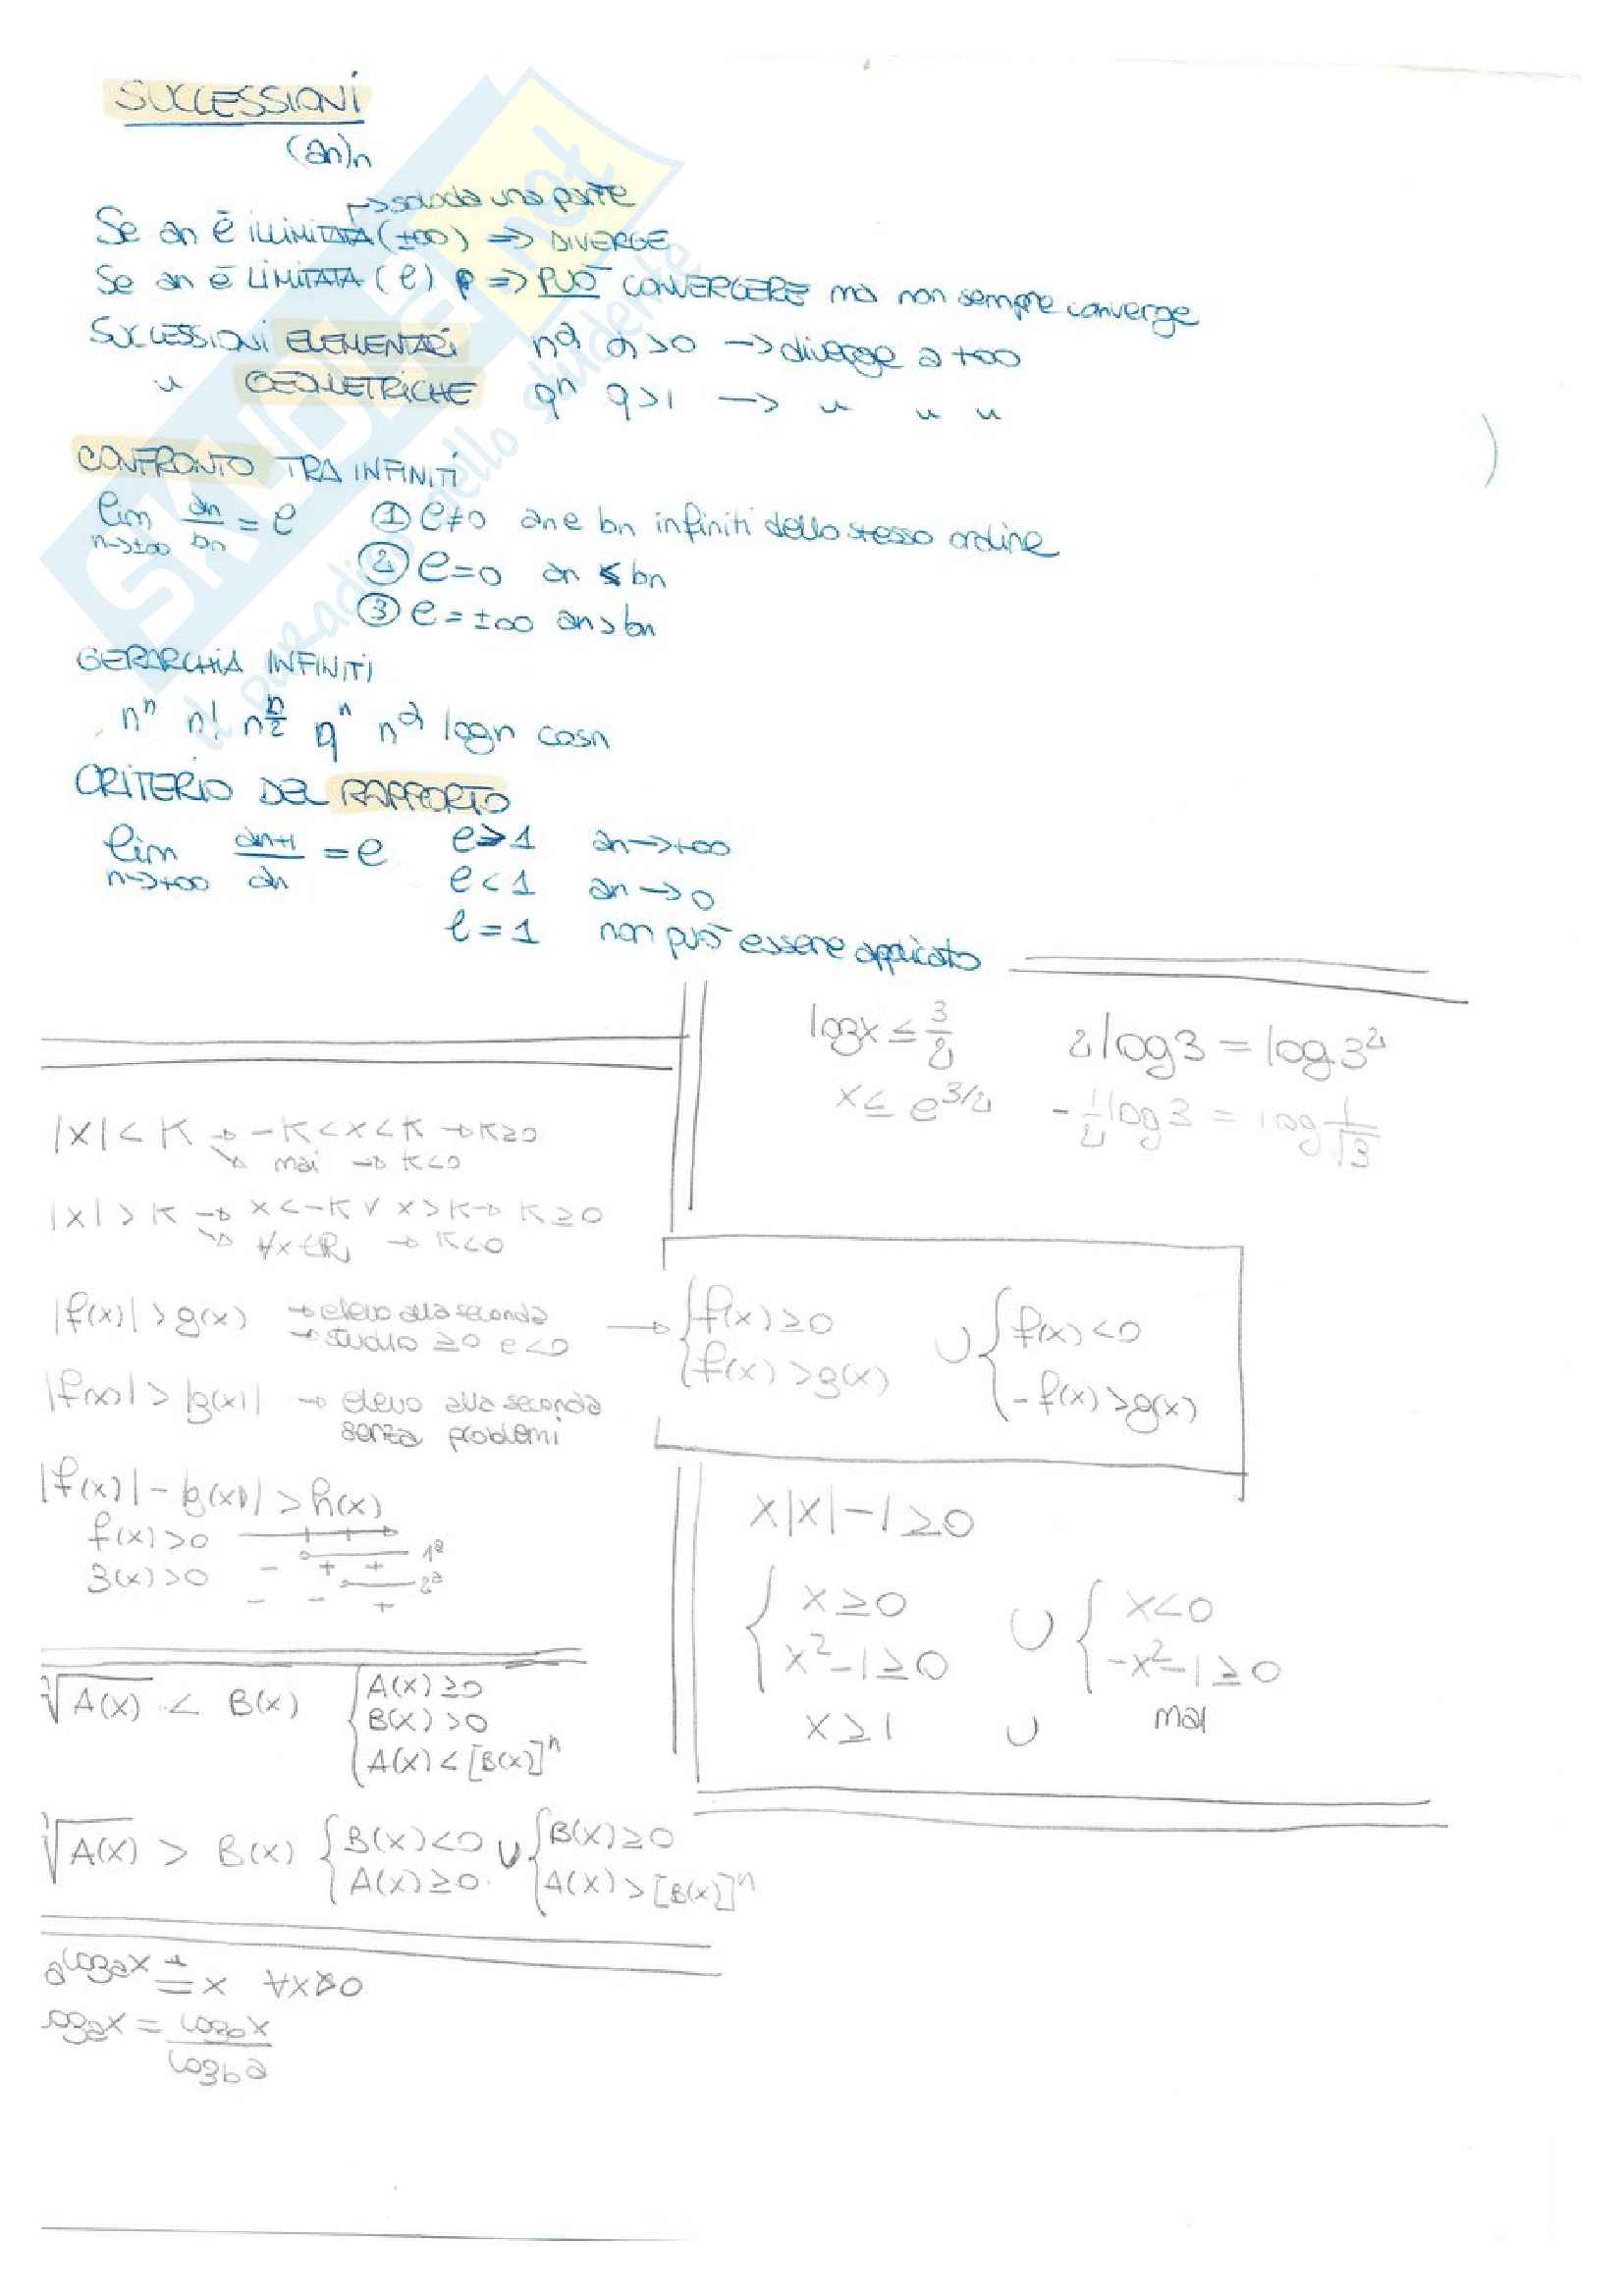 SUCCESSIONI
(an)n
→ solo da una parte
Se an è ILLIMITATA (±∞) => DIVERGE
Se an è LIMITATA (l) => PUÒ CONVERGERE ma non sempre converge
SUCCESSIONI ELEMENTARI n^α α>0 → diverge a +∞
" GEOMETRICHE q^n q>1 → " " "
CONFRONTO TRA INFINITI
lim n→±∞ an/bn = l ① l≠0 an e bn infiniti dello stesso ordine
② l=0 an < bn
③ l=±∞ an>bn
GERARCHIA INFINITI
n^n n! n^(n/2) q^n n^α logn cosn
CRITERIO DEL RAPPORTO
lim n→+∞ an+1/an = l l>1 an→+∞
l<1 an→0
l=1 non può essere applicato
logx ≤ 3/2 2log3 = log3²
x ≤ e^3/2 -1/2 log3 = log 1/√3
|x| < K → -K<x<K → K≥0
↘ mai → K<0
|x| > K → x<-K ∨ x>K → K≥0
↘ ∀x∈R → K<0
|f(x)| > g(x) → elevo alla seconda
→ studio ≥0 e <0
→ { f(x) ≥0 ∪ { f(x) <0
{ f(x) >g(x) { -f(x) >g(x)
|f(x)| > |g(x)| → elevo alla seconda
senza problemi
|f(x)| - |g(x)| > h(x)
f(x) >0 1ª
- + +
g(x) >0 2ª
- - +
x|x|-1≥0
{ x≥0 ∪ { x<0
{ x²-1≥0 { -x²-1≥0
x≥1 ∪ mai
ⁿ√A(x) < B(x) { A(x) ≥0
{ B(x) >0
{ A(x) < [B(x)]^n
ⁿ√A(x) > B(x) { B(x) <0 ∪ { B(x) ≥0
{ A(x) ≥0 { A(x) > [B(x)]^n
a^logax = x ∀x>0
logax = logbx / logba
SKUOLA.net
il paradiso dello studente